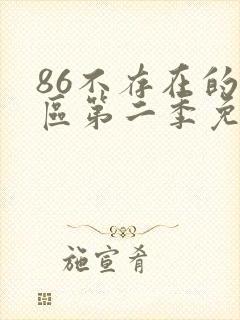 86不存在的
區第二季免
施宣肴